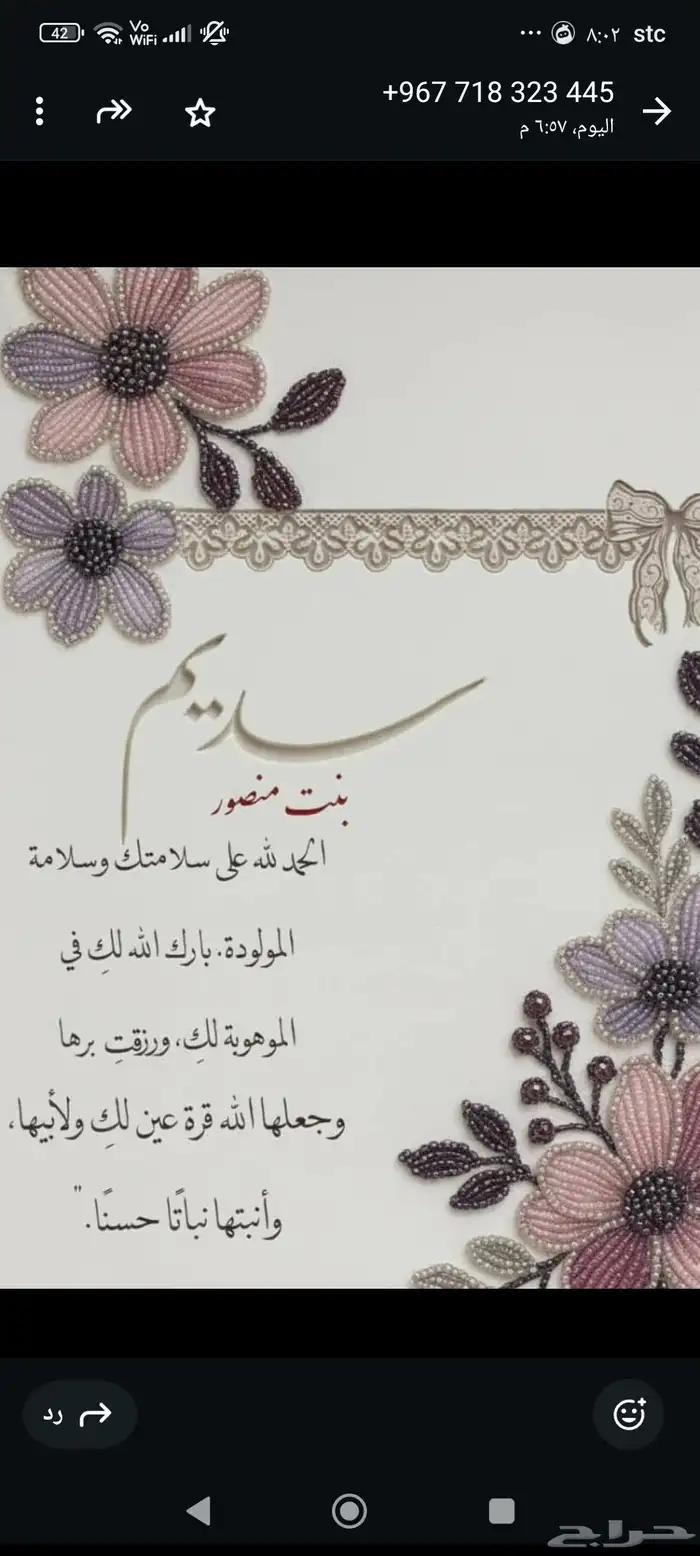 42 Vo WiFi ... ٨:٠٢ stc
+967 718 323 445
اليوم، ٦:٥٧ م
سديم
بنت منصور
الحمد لله على سلامتك وسلامة
المولودة. بارك الله لكِ في
الموهوبة لكِ، ورزقتِ برها
وجعلها الله قرة عين لكِ ولأبيها،
وأنبتها نباتًا حسنًا."
رد
حراج